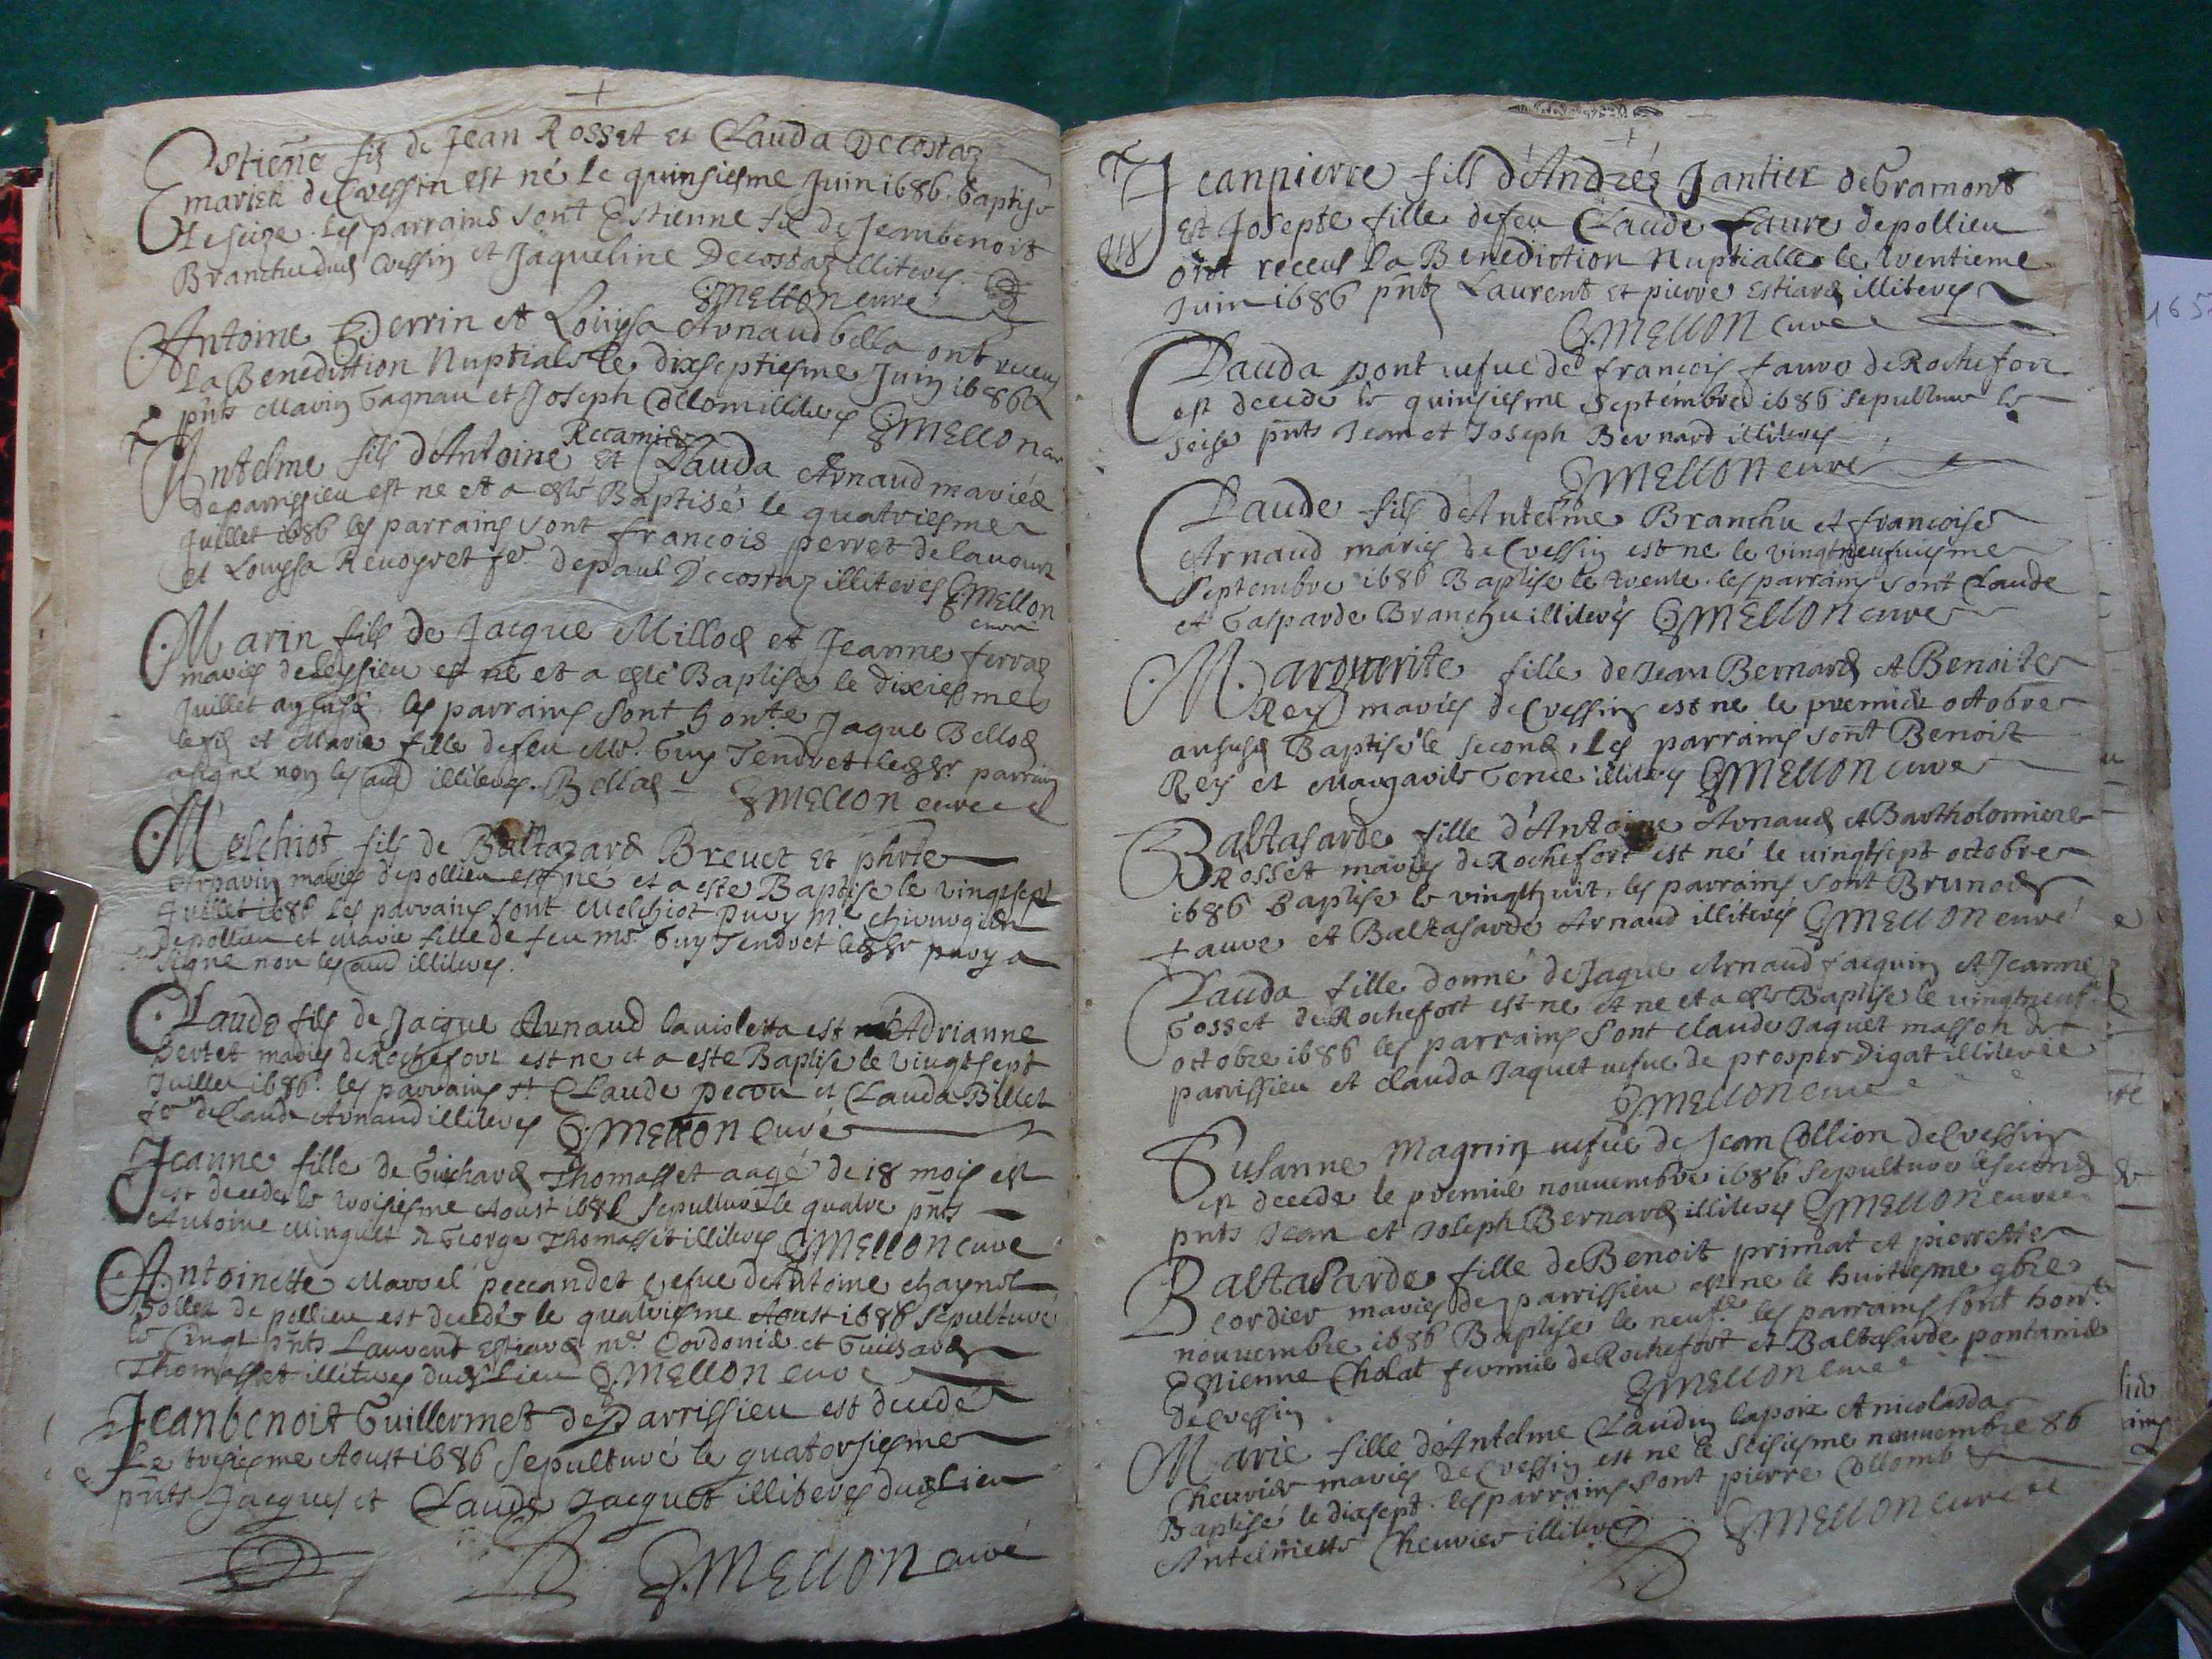 Estiene fils de Jean Rosset et Clauda Decostaz
mariez de Cressin est né le quinsiesme Juin 1686. Baptisé
le seize. les parrains sont Estienne fils de Jeanbenoit
Branchu dud Cressin et Jaqueline Decostaz illiteres.
MELLON curé
Antoine Perrin et Louysa Arnaud bella ont receu
La Benediction Nuptiale le dixseptiesme Juin 1686
pnts Marin Gagnau et Joseph Collom illiteres MELLON
Recamier
Antelme fils d'Antoine et Clauda Arnaud mariés
de parrissieu est ne et a esté Baptisé le quatriesme
Juillet 1686 les parrains sont francois perret de lavour
et Louysa Reuoyret fe de paul Decostaz illiteres MELLON
curé
Marin fils de Jacque Milliod et Jeanne ferraz
mariés de leyssieu est né et a esté Baptise le dixiesme
Juillet les parrains sont honte Jaque Bellod
et Marie fille de feu Mr Guy Tendret parrain
a signé non les illiteres. Bellod MELLON curé
Melchiot fils de Baltazard Breuet et phte
mariés de pollieu est né et a este Baptise le vingtsept
Juillet 1686 les parrains sont Melchiot puvy me chirurgien
de pollieu et Marie fille de feu mr Guy Tendret puvy a
signe non les illiteres.
Claude fils de Jacque Arnaud la violetta est Adrianne
Bertet mariés de Rochefort est ne et a este Baptise le vingtsept
Juillet 1686. les parrains st Claude pecou et Clauda Billet
fe de Claude Arnaud illiteres MELLON Curé
Jeanne fille de Guichard Thomasset aagé de 18 mois est
est decede le troisiesme Aoust 1686 sepulturé le quatre pnts
Antoine et George Thomasset illiteres MELLON curé
Antoinette Marvel peccandet vefue de Antoine
de pollieu est decede le quatriesme Aoust 1686 sepulturé
le cinqt pnts Laurent Estiard me Cordonié et Guichard
Thomasset illiteres dud lieu MELLON curé
Jeanbenoit Guillermet de parrissieu est decedé
Le tresiesme Aoust 1686 sepulturé le quatorsiesme
pnts Jacques et Claude Jacquet illiteres dud lieu
MELLON curé
Jeanpierre fils d'Andrés Jantier de Gramont
Et Josepte fille de feu Claude Faure de pollieu
ont receus la Benediction Nuptialle le trentieme
Juin 1686 pntz Laurent et pierre Estiard illiteres
MELLON curé
Clauda pont vefue de francois faure de Rochefort
est decede le quinsiesme Septembre 1686 sepulture le
seise pnts Jean et Joseph Bernard illiteres
MELLON curé
Claude fils d'Antelme Branchu et francoise
Arnaud mariés de Cressin est ne le vingtneufuiesme
Septembre 1686 Baptise le trente. les parrains sont Claude
et Gasparde Branchu illiteres MELLON curé
Marguerite fille de Jean Bernard et Benoite
Rey mariés de Cressin est ne le premier octobre
Baptisé le second, Les parrains sont Benoist
Rey et Margarite illiteres MELLON curé
Baltasarde fille d'Antoine Arnaud et Bartholomiere
Rosset mariés de Rochefort est né le vingtsept octobre
1686 Baptise le vingthuit, les parrains sont Brunod
faure et Baltasarde Arnaud illiterés MELLON curé
Clauda fille donné de Jaque Arnaud Jacquin et Jeanne
Gosset de Rochefort est ne et ne et a este Baptise le vingtneuf
octobre 1686 les parrains sont claude Jaquet masson de
parrissieu et clauda Jaquet vefue de prosper Digat illiterée
MELLON curé
Susanne Magnin vefue de Jean Collion de Cressin
est decede le premié nouuembre 1686 sepulture le second
pnts Jean et Joseph Bernard illiteres MELLON curé
Baltasarde fille de Benoit primat et pierrette
cordier mariés de parrissieu est ne le huitiesme 9bre
nouuembre 1686 Baptise le neufe les parrains sont honte
Estienne Cholat fermié de Rochefort et Baltasarde pontanié
de Cressin. MELLON curé
Marie fille d'Antelme Claudin lapoix et nicolarda
Cheurier mariés de Cressin est ne le seisiesme nouuembre 86
Baptisé le dixsept. les parrains sont pierre Collomb et
Antelmette Cheurier illiteres MELLON curé